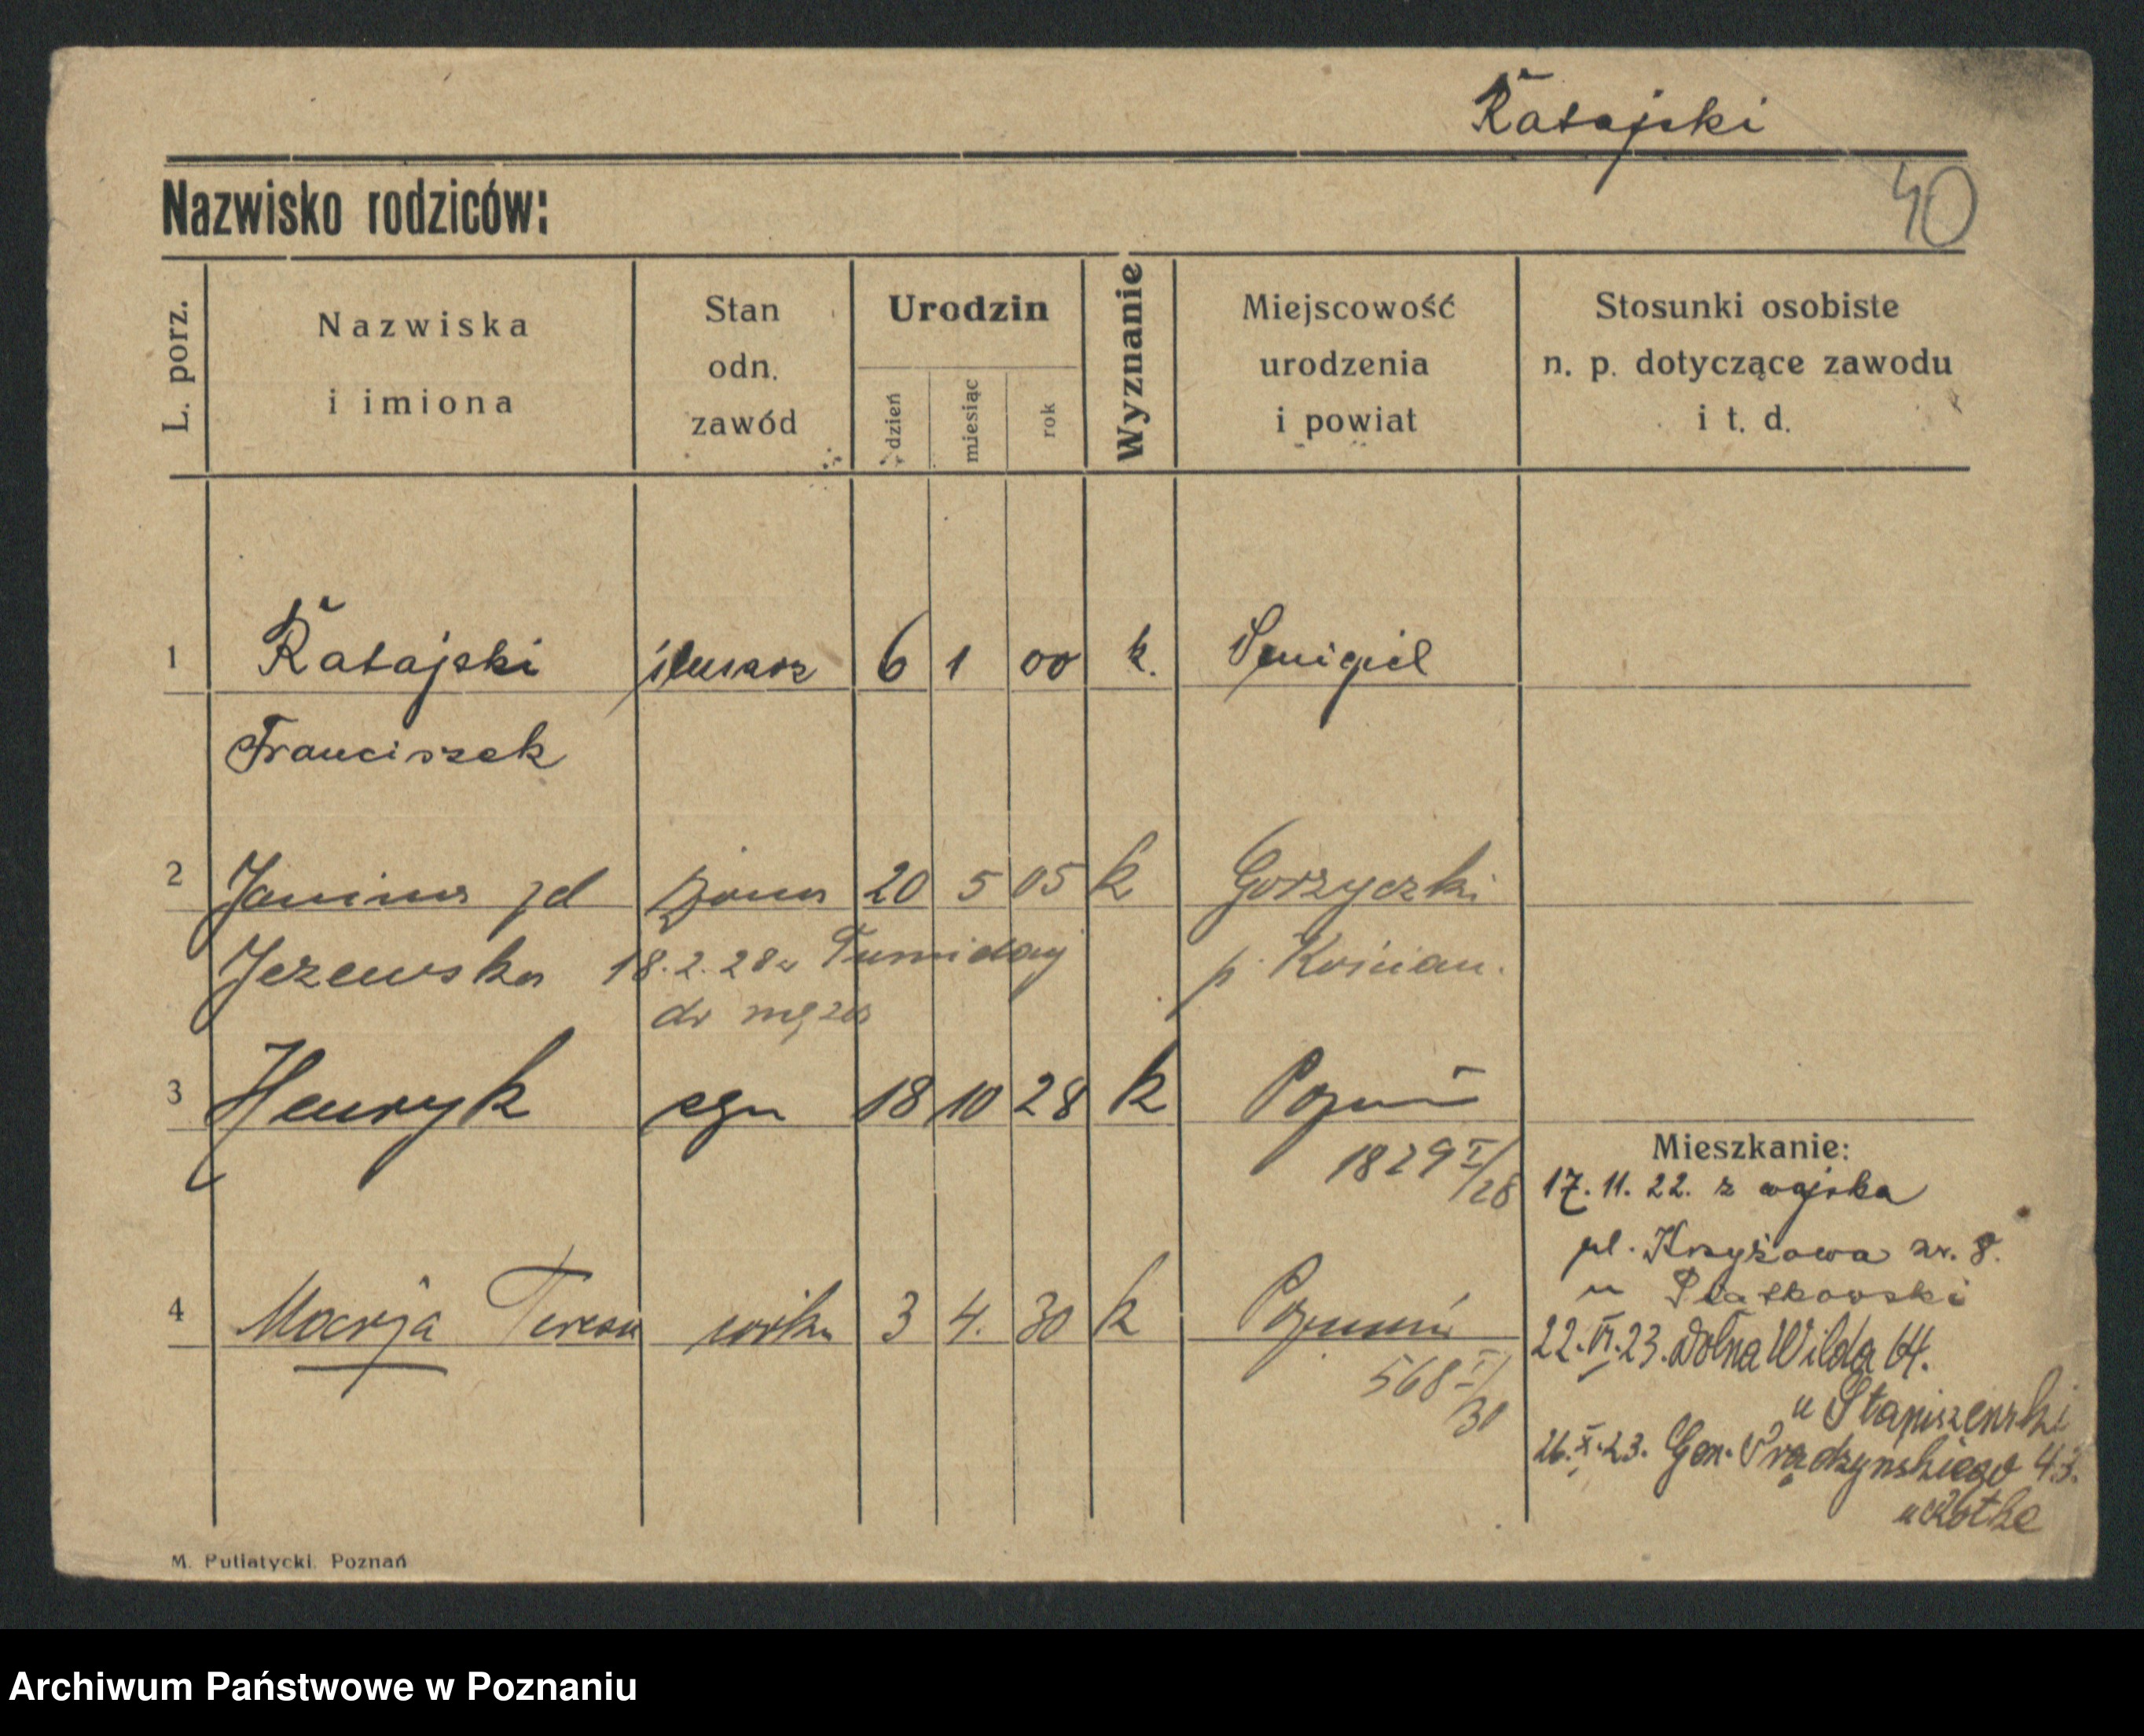 Ratajski
Nazwisko rodziców:
40
L. porz.
Nazwiska
i imiona
Stan
odn.
zawód
Urodzin
dzień
miesiąc
rok
Wyznanie
Miejscowość
urodzenia
i powiat
Stosunki osobiste
n. p. dotyczące zawodu
i t. d.
1 Ratajski ślusarz 6 1 00 k. Śmigiel
Franciszek
2 Janina zd żona 20 5 05 k Gorzyczki
Jezewska 18.2.28 z Tumidaj p. Kościan.
do męża
3 Henryk syn 18 10 28 k Poznań
1829 I/28
4 Marja Teresa córka 3 4. 30 k Poznań
568 I/30
Mieszkanie:
17. 11. 22. z wojska
ul. Krzyżowa nr. 8.
u Piatkowski
22.VI.23. Dolna Wilda 64.
u Staniszewski
26.X.23. Gen. Prądzynskiego 43.
u Kotke
M. Putiatycki, Poznań
Archiwum Państwowe w Poznaniu